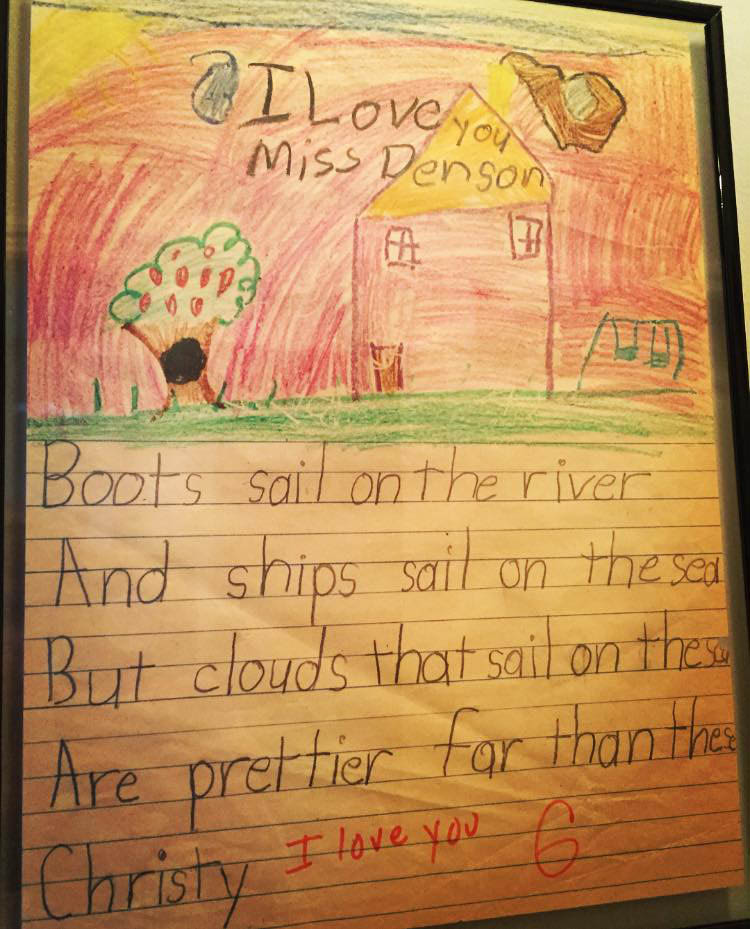 I Love you
Miss Denson
Boots sail on the river
And ships sail on the sea
But clouds that sail on the
Are prettier far than these
Christy I love you 6